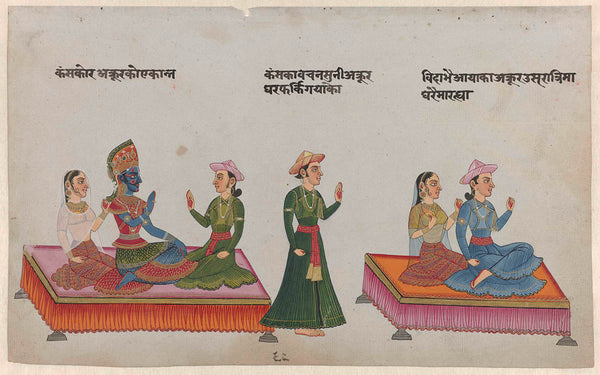 कंसकोर अक्रूरको एकान्त
कंसका वचन सुनी अक्रूर
घर फर्कि गयाका
विदा भै आयाका अक्रूर उस रात्रिमा
घरैमा रह्या